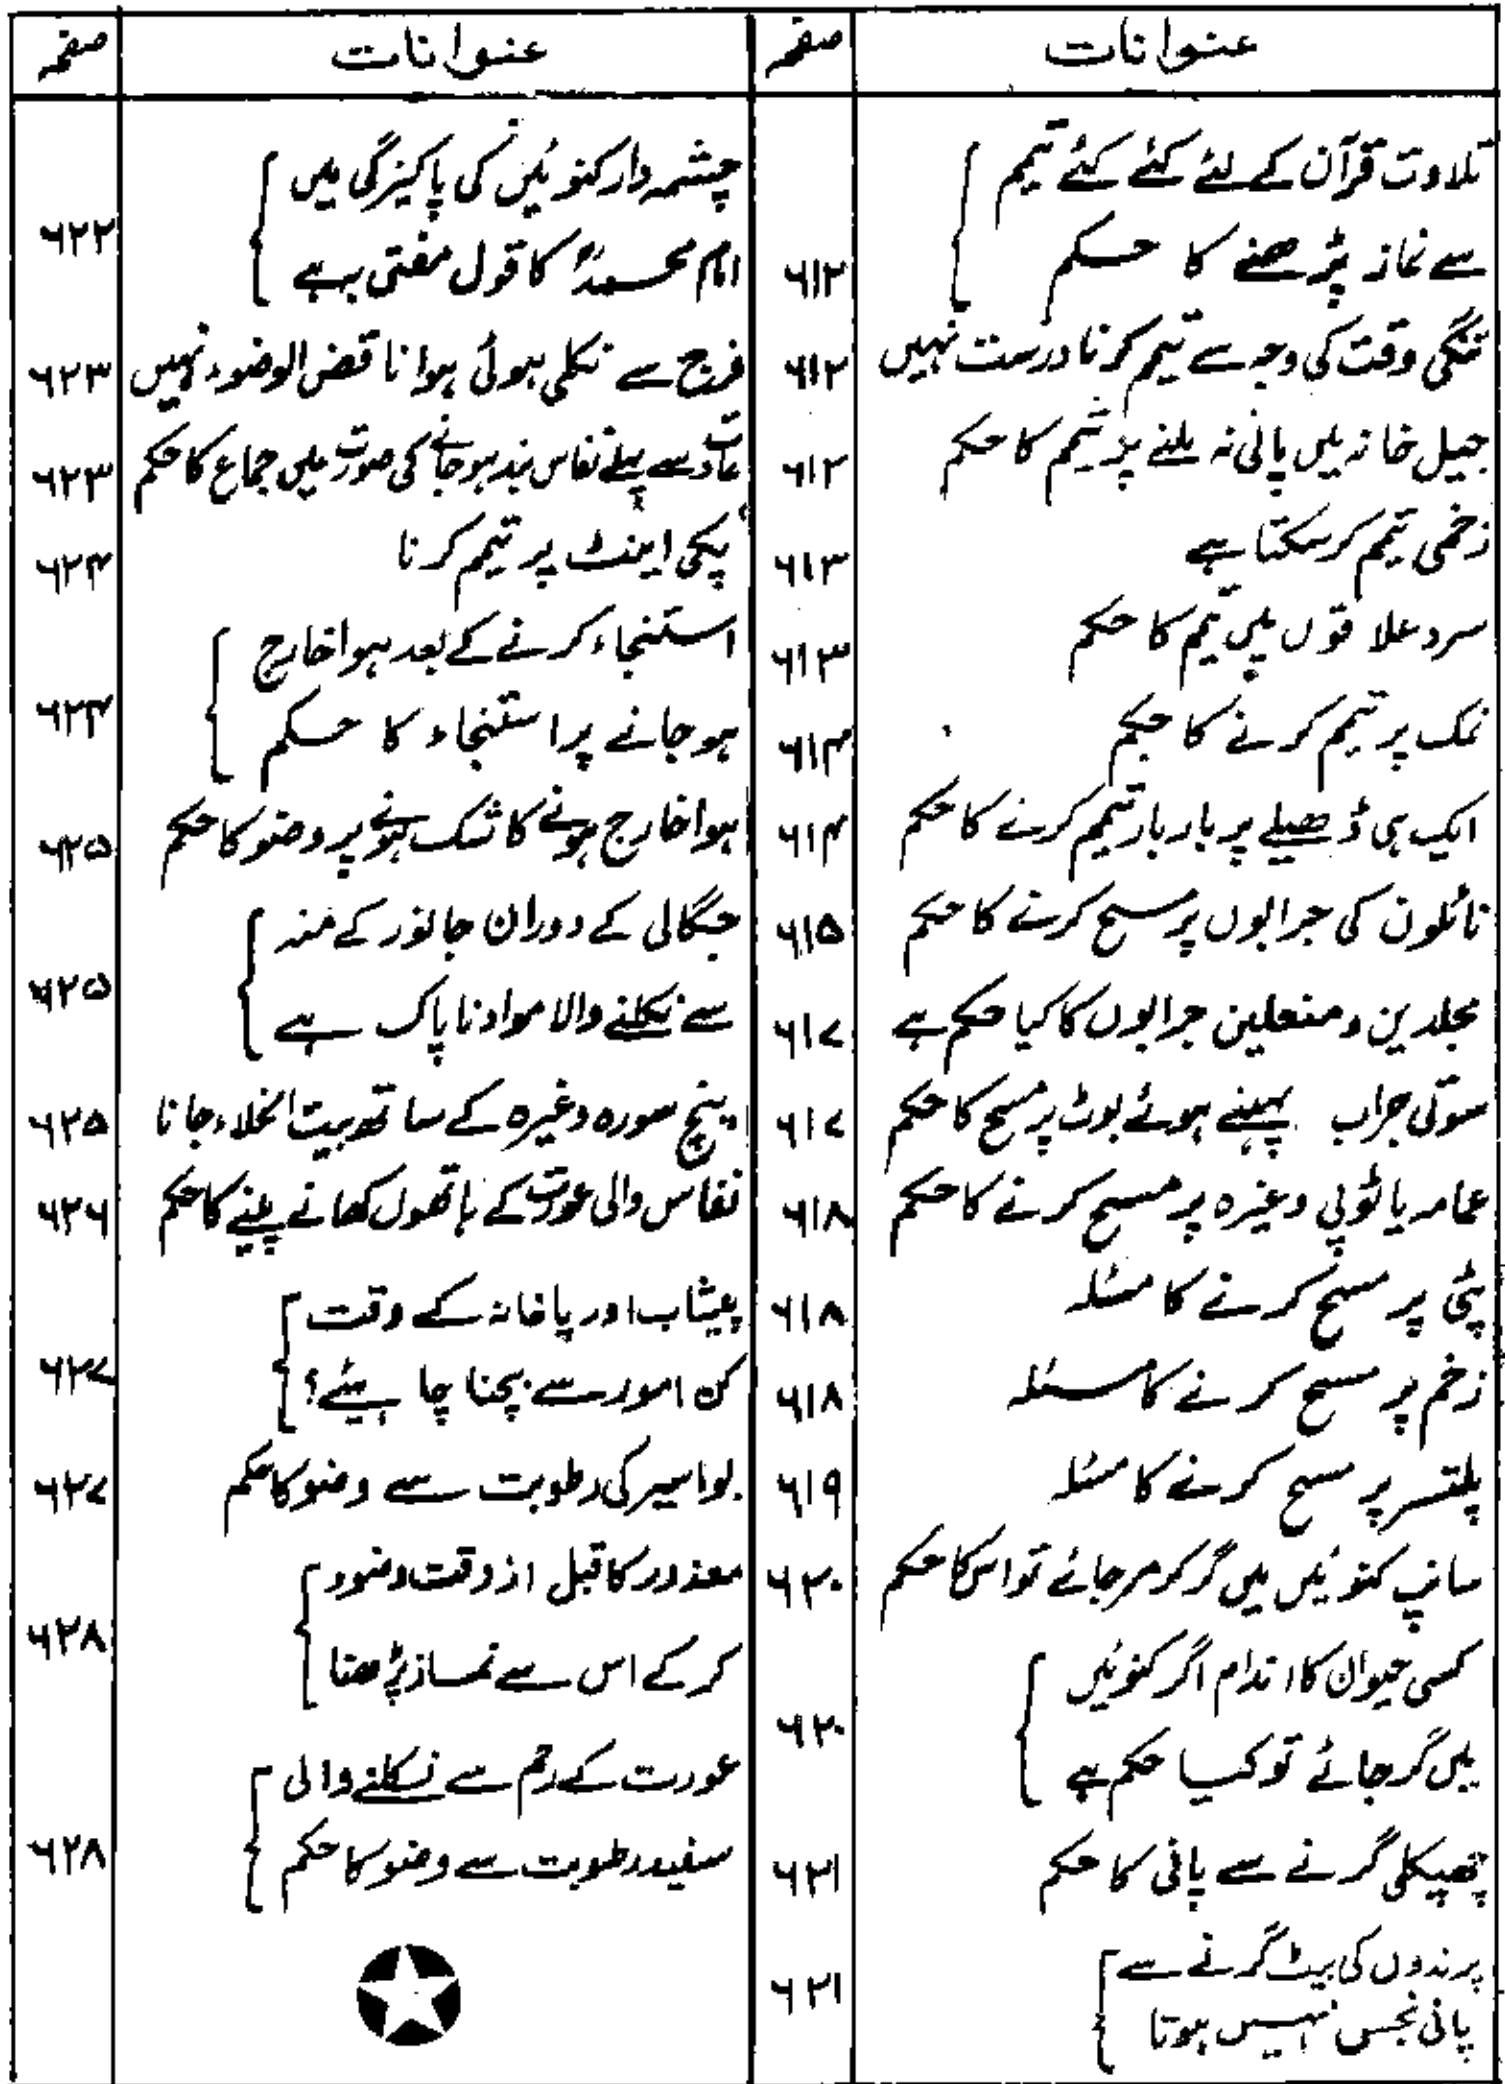 عنوانات صفحہ
تلاوت قرآن کے لئے کئے گئے تیمم
سے نماز پڑھنے کا حکم ۶۱۲
تنگی وقت کی وجہ سے تیمم کرنا درست نہیں ۶۱۲
جیل خانہ میں پانی نہ ملنے پر تیمم کا حکم ۶۱۲
زخمی تیمم کر سکتا ہے ۶۱۳
سرد علاقوں میں تیمم کا حکم ۶۱۳
نمک پر تیمم کرنے کا حکم ۶۱۴
ایک ہی ڈھیلے پر بار بار تیمم کرنے کا حکم ۶۱۴
نائلون کی جرابوں پر مسح کرنے کا حکم ۶۱۵
مجلدین و منعلین جرابوں کا کیا حکم ہے ۶۱۷
سوتی جراب پہنے ہوئے بوٹ پر مسح کا حکم ۶۱۷
عمامہ یا ٹوپی وغیرہ پر مسح کرنے کا حکم ۶۱۸
پٹی پر مسح کرنے کا مسئلہ ۶۱۸
زخم پر مسح کرنے کا مسئلہ ۶۱۸
پلستر پر مسح کرنے کا مسئلہ ۶۱۹
سانپ کنوئیں میں گر کر مر جائے تو اس کا حکم ۶۲۰
کسی حیوان کا اندام اگر کنوئیں
میں گر جائے تو کیا حکم ہے ۶۲۰
چھپکلی گرنے سے پانی کا حکم ۶۲۱
پرندوں کی بیٹ گرنے سے
پانی نجس نہیں ہوتا ۶۲۱
عنوانات صفحہ
چشمہ دار کنوئیں کی پاکیزگی میں
امام محمدؒ کا قول مفتی بہ ہے ۶۲۲
فرج سے نکلی ہوئی ہوا ناقض الوضوء نہیں ۶۲۳
عادت سے پہلے نفاس بند ہو جانے کی صورت میں جماع کا حکم ۶۲۳
پکی اینٹ پر تیمم کرنا ۶۲۴
استنجاء کرنے کے بعد ہوا خارج
ہو جانے پر استنجاء کا حکم ۶۲۴
ہوا خارج ہونے کا شک ہونے پر وضو کا حکم ۶۲۵
جگالی کے دوران جانور کے منہ
سے نکلنے والا مواد ناپاک ہے ۶۲۵
پنج سورہ وغیرہ کے ساتھ بیت الخلاء جانا ۶۲۵
نفاس والی عورت کے ہاتھوں کھانے پینے کا حکم ۶۲۶
پیشاب اور پاخانہ کے وقت
کن امور سے بچنا چاہیئے؟ ۶۲۷
بواسیر کی رطوبت سے وضو کا حکم ۶۲۷
معذور کا قبل از وقت وضوء
کر کے اس سے نماز پڑھنا ۶۲۸
عورت کے رحم سے نکلنے والی
سفید رطوبت سے وضو کا حکم ۶۲۸